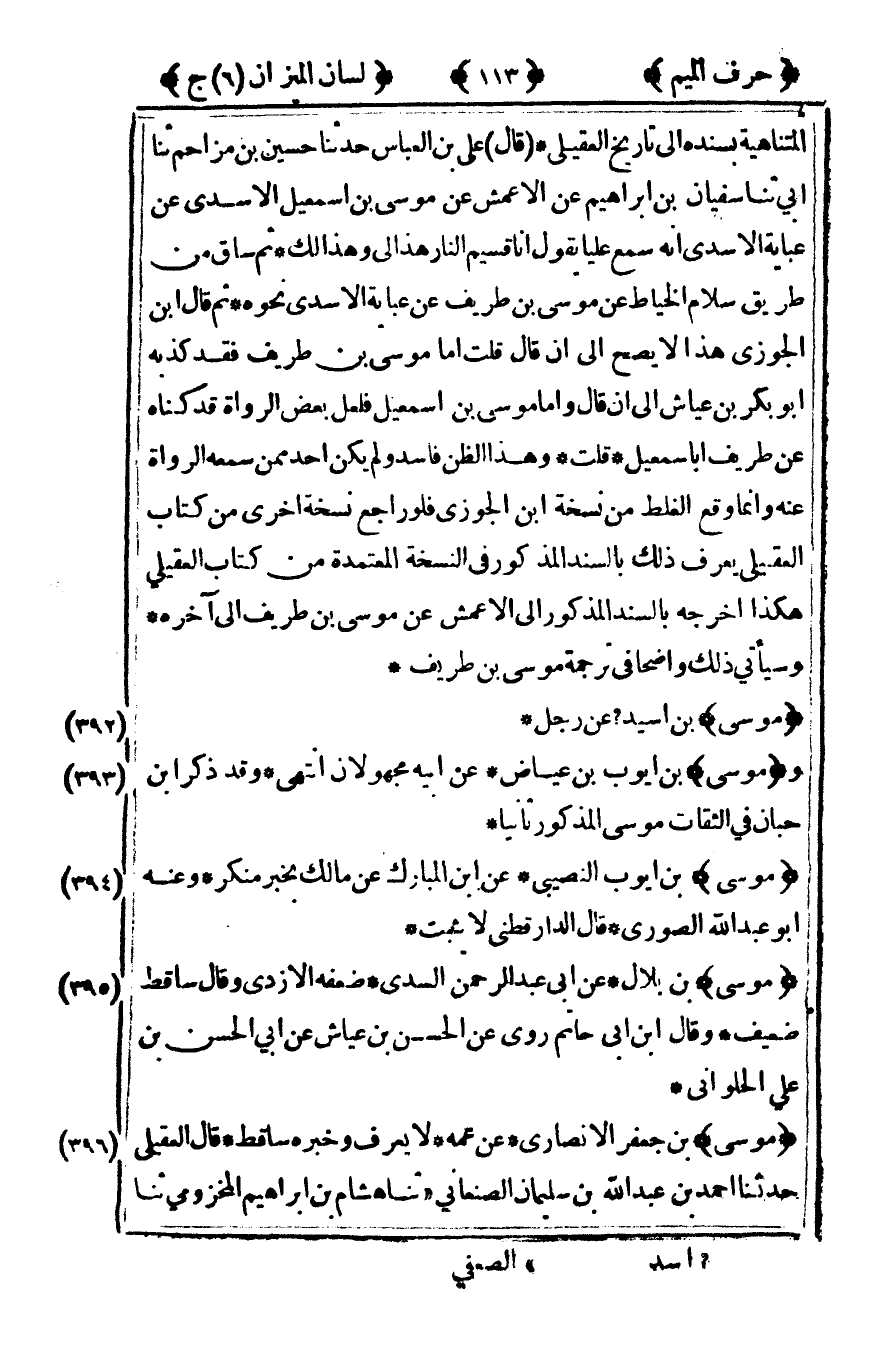 ﴿ حرف الميم ﴾ ﴿ ١١٣ ﴾ ﴿ لسان الميزان (٦) ج ﴾
المتناهية بسنده الى تاريخ العقيلى * (قال) على بن العباس حدثنا حسين بن مزاحم ثنا
ابي ثنا سفيان بن ابراهيم عن الاعمش عن موسى بن اسمعيل الاسدى عن
عباية الاسدى انه سمع عليا يقول انا قسيم النار هذا لى وهذا لك * ثم ساق من
طريق سلام الخياط عن موسى بن طريف عن عباية الاسدى نحوه * ثم قال ابن
الجوزى هذا لا يصح الى ان قال قلت اما موسى بن طريف فقد كذبه
ابو بكر بن عياش الى ان قال واما موسى بن اسمعيل فلعل بعض الرواة قد كناه
عن طريف اباسمعيل * قلت * وهذا الظن فاسد ولم يكن احد ممن سمعه الرواة
عنه وانما وقع الغلط من نسخة ابن الجوزى فلو راجع نسخة اخرى من كتاب
العقيلى يعرف ذلك بالسند المذكور فى النسخة المعتمدة من كتاب العقيلي
هكذا اخرجه بالسند المذكور الى الاعمش عن موسى بن طريف الى آخره *
وسيأتي ذلك واضحا فى ترجمة موسى بن طريف *
﴿ موسى ﴾ بن اسيد ? عن رجل * (٣٩٢)
و ﴿ موسى ﴾ بن ايوب بن عياض * عن ابيه مجهولان انتهى * وقد ذكر ابن (٣٩٣)
حبان في الثقات موسى المذكور ثانيا *
﴿ موسى ﴾ بن ايوب النصيبى * عن ابن المبارك عن مالك بخبر منكر * وعنه (٣٩٤)
ابو عبد الله الصورى * قال الدارقطنى لا يثبت *
﴿ موسى ﴾ بن بلال * عن ابى عبد الرحمن السدى * ضعفه الازدى وقال ساقط (٣٩٥)
ضعيف * وقال ابن ابى حاتم روى عن الحسن بن عياش عن ابي الحسن بن
علي الحلوانى *
﴿ موسى ﴾ بن جعفر الانصارى * عن عمه * لا يعرف وخبره ساقط * قال العقيلى (٣٩٦)
حدثنا احمد بن عبد الله بن سليمان الصنعاني « ثنا هشام بن ابراهيم المخزومي ثنا
? اسد » الصيفي